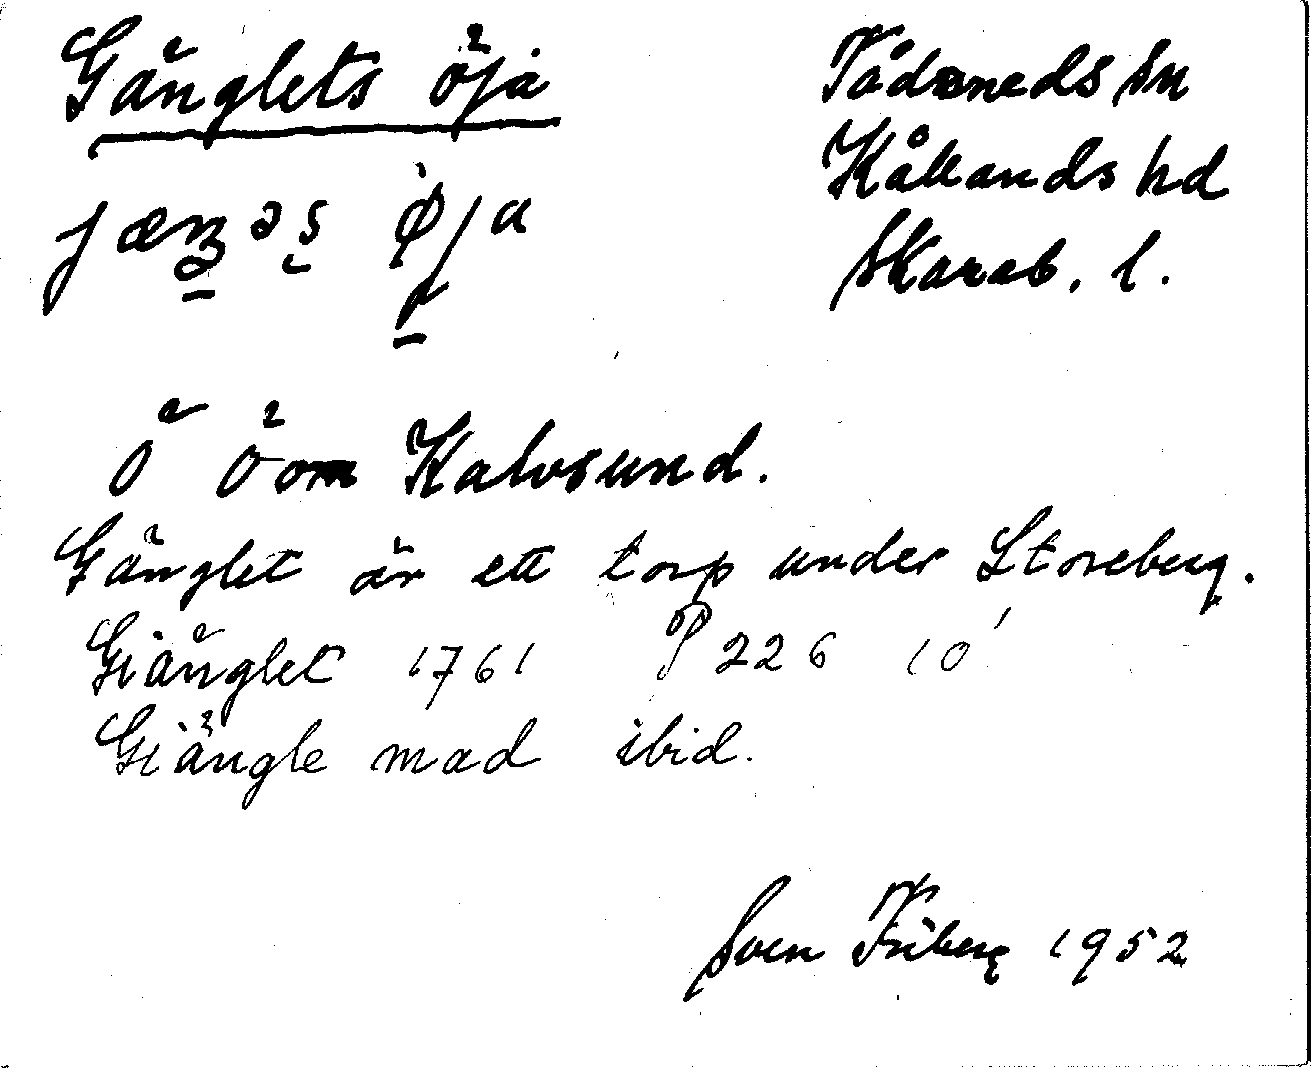 Gänglets öja
Tådeneds sn
Kållands hd
Skarab. l.
Ö ö om Kalvsund.
Gänglet är ett torp under Storeberg.
Giänglet 1761 P 226 10'
Giängle mad ibid.
Sven Friberg 1952